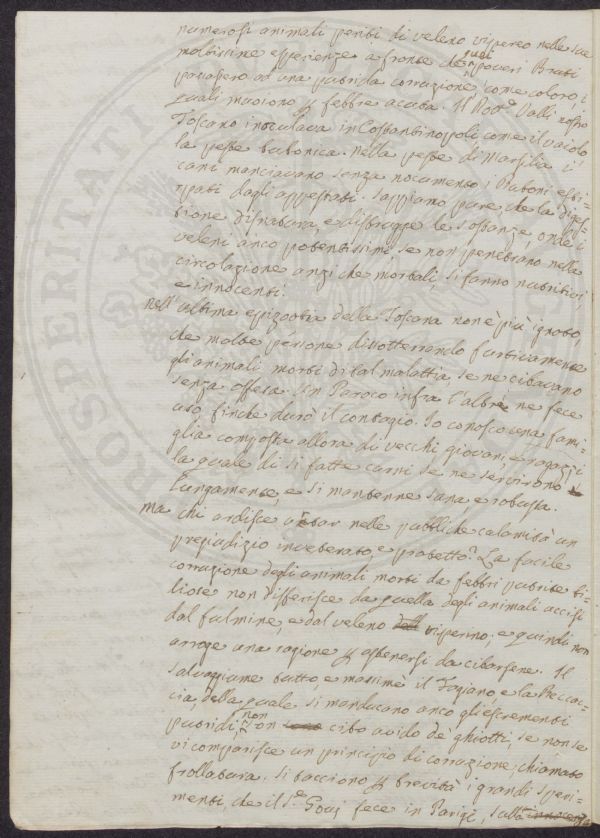 numerosi animali periti di veleno vipereo nelle sue
moltissime esperienze a fronte che quei poveri Bruti
passassero ad una putrida corruzione, come coloro, i
quali muoiono p febbre acuta. Il Dott.e Valli nostro
Toscano inoculava in Costantinopoli, come il vaiolo
la peste bubonica. Nella peste di Marsilia i
cani mangiavano senza nocumento i Buboni estir-
pati dagli appestati. Sappiamo pure che la diges-
tione disnatura, e distrugge le sostanze, onde i
veleni anco potentissimi se non penetrano nella
circolazione anzi che mortali, si fanno nutritivi,
e innocenti.
Nell'ultima epizootia della Toscana non è più ignoto,
che molte persone disotterrando furtivamente
gli animali morti di tal malattia se ne cibavano
senza offesa. Un Paroco infra l'altre ne fece
uso, finche durò il contagio. Io conosco una fami-
glia composta allora di vecchi, giovani, e ragazzi
la quale di sì fatte carni se ne servirono
lungamente, e si mantenne sana, e robusta.
Ma chi ardisce urtar nelle pubbliche calamità un
pregiudizio inveterato, e protetto? La facile
corruzione degli animali morti da febbri putride bi-
liose non differisce da quella degli animali uccisi
dal fulmine, e dal veleno viperino; e quindi non
arroge una ragione p astenersi da cibarsene. Il
salvaggiume tutto, e massime il Fagiano, e la Beccac-
cia, della quale si manducano anco gli escrementi
putridi, non son cibo avido de ghiotti, se non se
vi comparisce un principio di corruzione, chiamato
frollatura. Si tacciono p brevità i grandi speri-
menti, che il S.r Gouj fece in Parigi, sulla innocenza